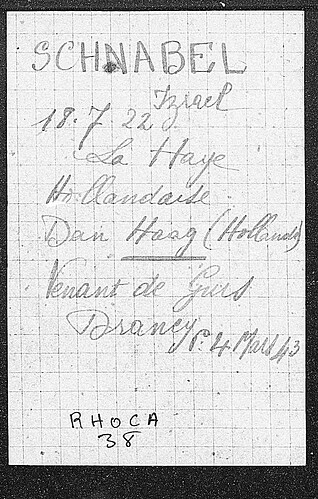 SCHNABEL
Izrael
18.7 22
La Haye
Hollandaise
Dan Haag (Hollande)
Venant de Gurs
Drancy P. 4 Mars 43
RHOCA
38